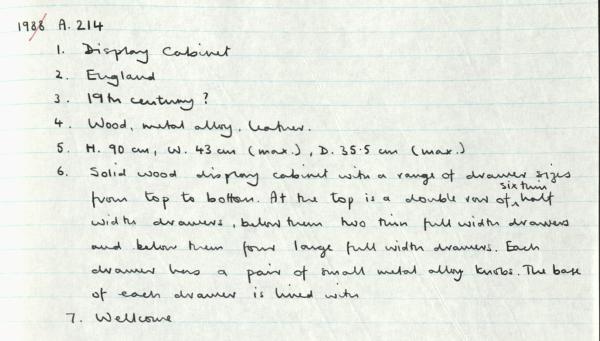 1988 A. 214
1. Display Cabinet
2. England
3. 19th century ?
4. Wood, metal alloy, leather.
5. H. 90 cm, W. 43 cm (max.), D. 35.5 cm (max.)
6. Solid wood display cabinet with a range of drawer sizes
from top to bottom. At the top is a double row of ^six thin half
width drawers, below them two thin full width drawers
and below them four large full width drawers. Each
drawer has a pair of small metal alloy knobs. The base
of each drawer is lined with
7. Wellcome